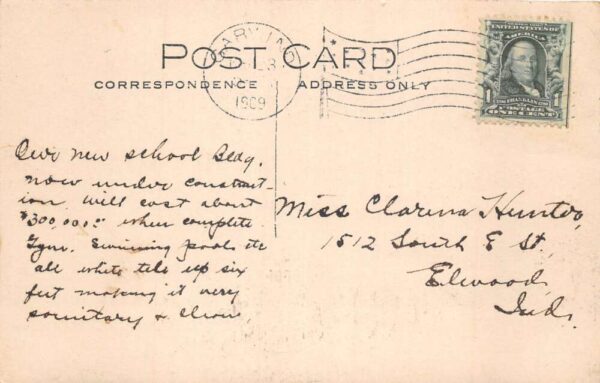 POST CARD
CORRESPONDENCE
ADDRESS ONLY
GARY, IND.
1909
UNITED STATES OF AMERICA
FRANKLIN
POSTAGE
1
1
ONE CENT
Our new school Bldg.
now under construct-
ion will cost about
$300,000.00 when complete
Gym. Swimming pools etc
all white tile up six
feet making it very
sanitary & clean
Miss Clarena Hunter,
1512 South E St,
Elwood,
Ind.